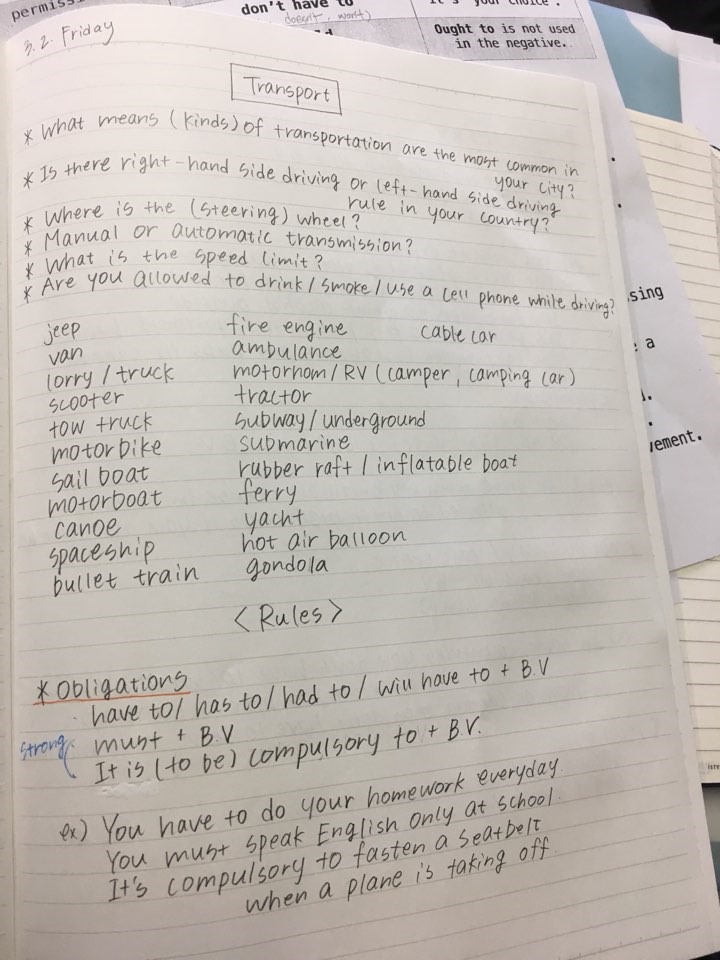 permiss
don't have to
doesn't, won't)
it's your choice.
Ought to is not used
in the negative.
3.2. Friday
Transport
* What means (kinds) of transportation are the most common in
your city?
* Is there right-hand side driving or left-hand side driving
rule in your country?
* Where is the (steering) wheel?
* Manual or automatic transmission?
* What is the speed limit?
* Are you allowed to drink/smoke/use a cell phone while driving?
jeep fire engine cable car
van ambulance
lorry/truck motorhom/RV (camper, camping car)
scooter tractor
tow truck subway/underground
motorbike submarine
sail boat rubber raft / inflatable boat
motorboat ferry
canoe yacht
spaceship hot air balloon
bullet train gondola
<Rules>
* Obligations
· have to/ has to/ had to/ will have to + B.V
strong
must + B.V
It is (to be) compulsory to + B.V.
ex) You have to do your homework everyday.
You must speak English only at school.
It's compulsory to fasten a seatbelt
when a plane is taking off
sing
: a
vement.